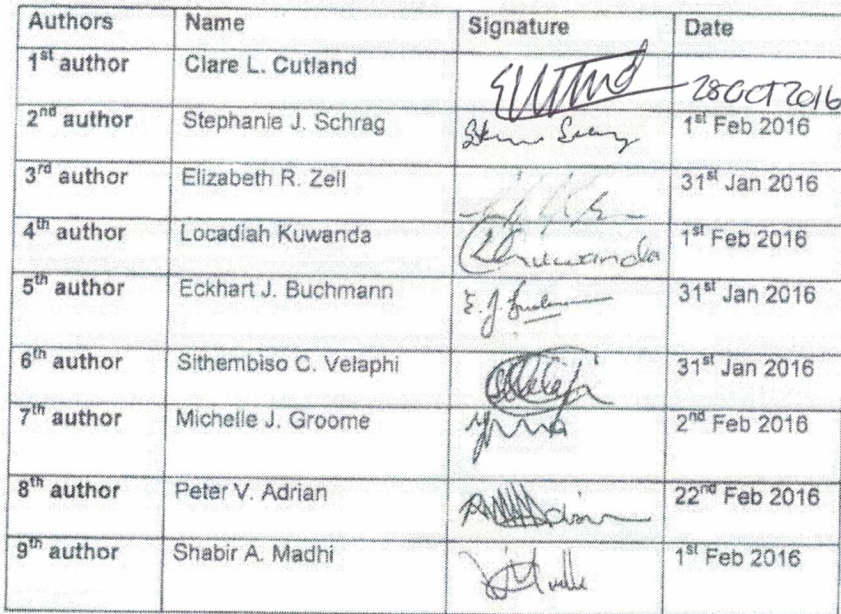 Authors Name Signature Date
1st author Clare L. Cutland 28 OCT 2016
2nd author Stephanie J. Schrag 1st Feb 2016
3rd author Elizabeth R. Zell 31st Jan 2016
4th author Locadiah Kuwanda 1st Feb 2016
5th author Eckhart J. Buchmann 31st Jan 2016
6th author Sithembiso C. Velaphi 31st Jan 2016
7th author Michelle J. Groome 2nd Feb 2016
8th author Peter V. Adrian 22nd Feb 2016
9th author Shabir A. Madhi 1st Feb 2016